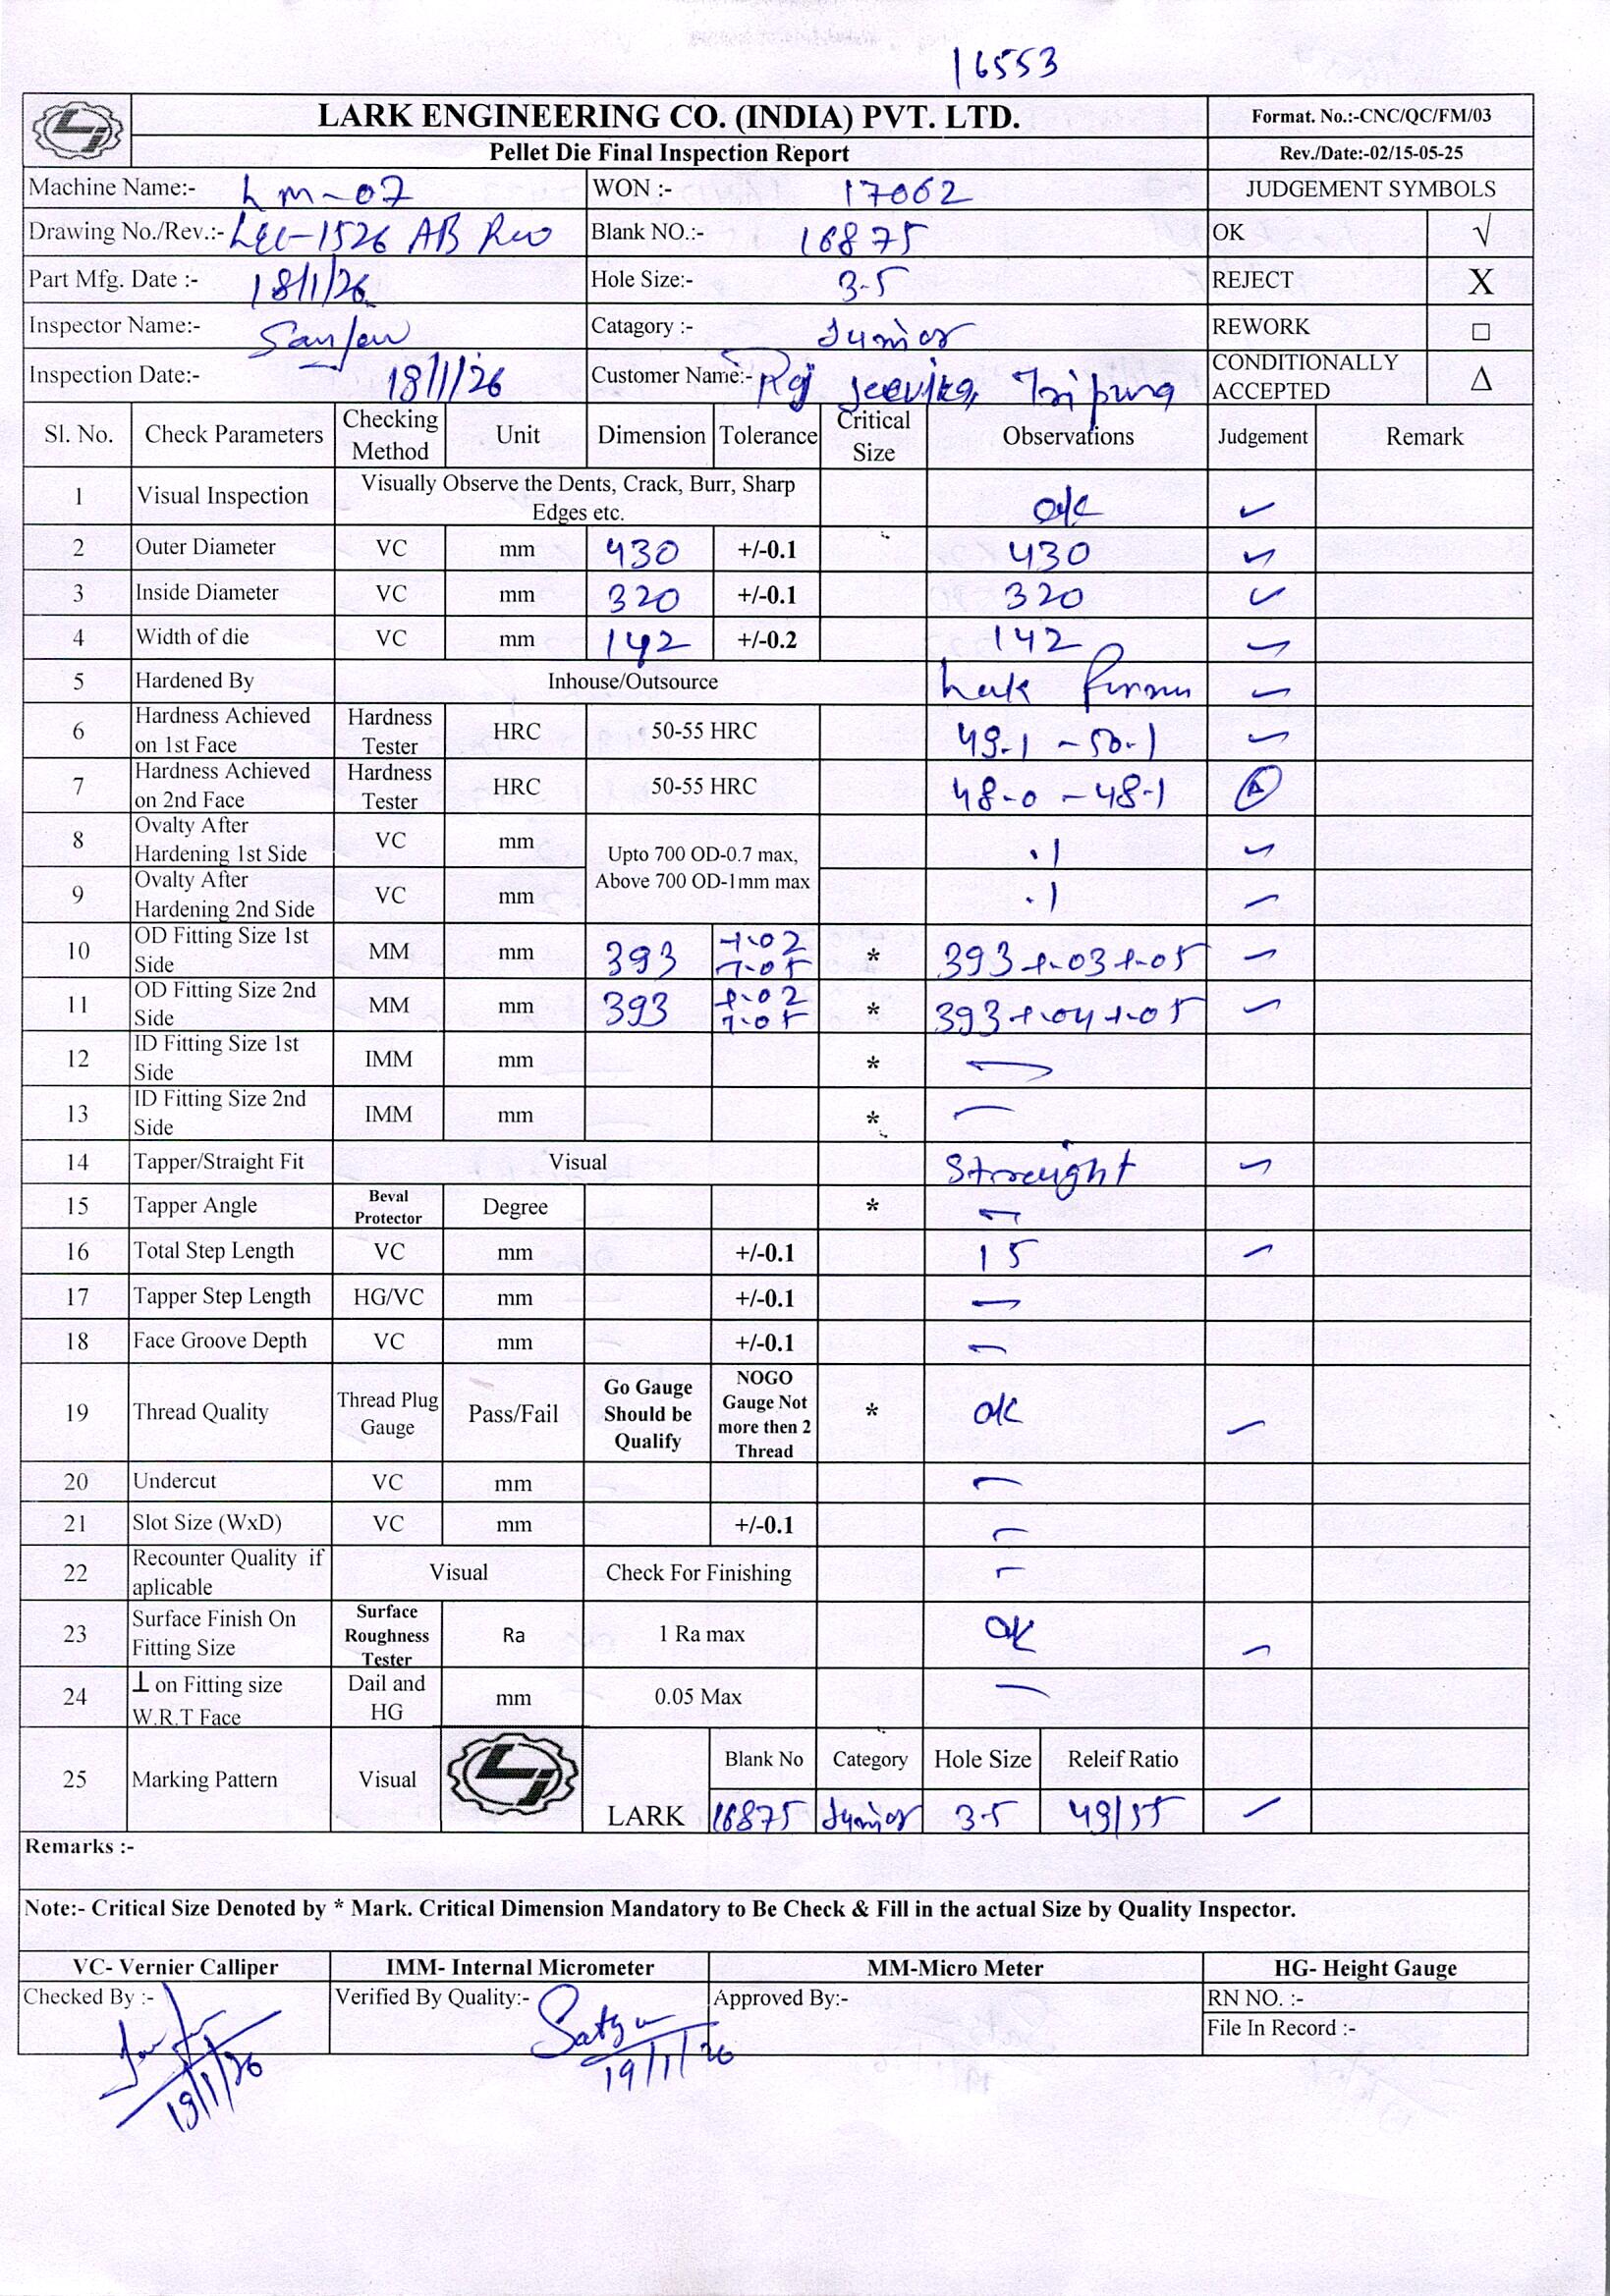 16553
LARK ENGINEERING CO. (INDIA) PVT. LTD.
Format. No.:-CNC/QC/FM/03
Pellet Die Final Inspection Report
Rev./Date:-02/15-05-25
Machine Name:- Lm-07 WON :- 17062 JUDGEMENT SYMBOLS
Drawing No./Rev.:- LEC-1526 AB Rev Blank NO.:- 16875 OK √
Part Mfg. Date :- 18/1/26 Hole Size:- 3.5 REJECT X
Inspector Name:- Catagory :- Junior REWORK □
Inspection Date:- 18/1/26 Customer Name:- Tripura CONDITIONALLY ACCEPTED Δ
Sl. No. Check Parameters Checking Method Unit Dimension Tolerance Critical Size Observations Judgement Remark
1 Visual Inspection Visually Observe the Dents, Crack, Burr, Sharp Edges etc. ok ✓
2 Outer Diameter VC mm 430 +/-0.1 430 ✓
3 Inside Diameter VC mm 320 +/-0.1 320 ✓
4 Width of die VC mm 142 +/-0.2 142 ✓
5 Hardened By Inhouse/Outsource ✓
6 Hardness Achieved on 1st Face Hardness Tester HRC 50-55 HRC 49.1 - 50.1 ✓
7 Hardness Achieved on 2nd Face Hardness Tester HRC 50-55 HRC 48.0 - 48.1
8 Ovalty After Hardening 1st Side VC mm Upto 700 OD-0.7 max, Above 700 OD-1mm max .1 ✓
9 Ovalty After Hardening 2nd Side VC mm .1 ✓
10 OD Fitting Size 1st Side MM mm 393 +.02 +.05 * 393 +.03 +.05 ✓
11 OD Fitting Size 2nd Side MM mm 393 +.02 +.05 * 393 +.04 +.05 ✓
12 ID Fitting Size 1st Side IMM mm * —
13 ID Fitting Size 2nd Side IMM mm * —
14 Tapper/Straight Fit Visual Straight ✓
15 Tapper Angle Beval Protector Degree * —
16 Total Step Length VC mm +/-0.1 15 ✓
17 Tapper Step Length HG/VC mm +/-0.1 —
18 Face Groove Depth VC mm +/-0.1 —
19 Thread Quality Thread Plug Gauge Pass/Fail Go Gauge Should be Qualify NOGO Gauge Not more then 2 Thread * ok ✓
20 Undercut VC mm —
21 Slot Size (WxD) VC mm +/-0.1 —
22 Recounter Quality if aplicable Visual Check For Finishing —
23 Surface Finish On Fitting Size Surface Roughness Tester Ra 1 Ra max ok ✓
24 ⊥ on Fitting size W.R.T Face Dail and HG mm 0.05 Max —
25 Marking Pattern Visual LARK Blank No Category Hole Size Releif Ratio
16875 Junior 3.5 49/55 ✓
Remarks :-
Note:- Critical Size Denoted by * Mark. Critical Dimension Mandatory to Be Check & Fill in the actual Size by Quality Inspector.
VC- Vernier Calliper IMM- Internal Micrometer MM-Micro Meter HG- Height Gauge
Checked By :- Verified By Quality:- Satya Approved By:- RN NO. :-
File In Record :-
19/1/26